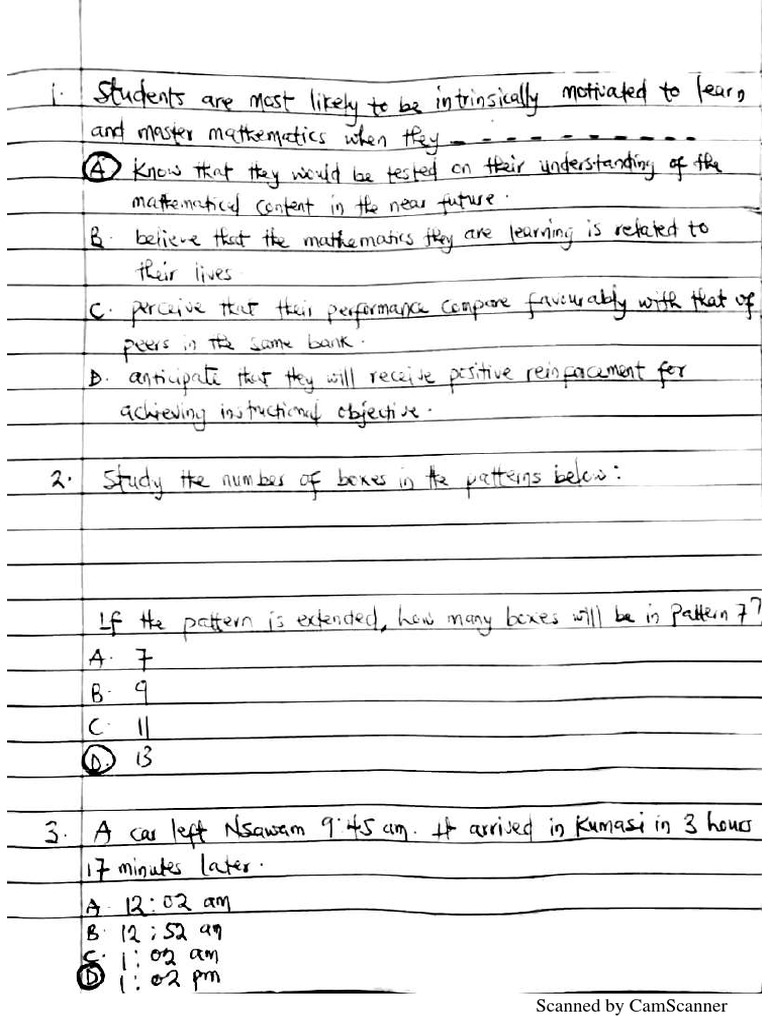 1. Students are most likely to be intrinsically motivated to learn
and master mathematics when they - - - - - - - - - -
A know that they would be tested on their understanding of the
mathematical content in the near future.
B. believe that the mathematics they are learning is related to
their lives.
C. perceive that their performance compare favourably with that of
peers in the same bank.
D. anticipate that they will receive positive reinforcement for
achieving instructional objective.
2. Study the number of boxes in the patterns below:
If the pattern is extended, how many boxes will be in pattern 7?
A. 7
B. 9
C. 11
D. 13
3. A car left Nsawam 9:45 am. It arrived in Kumasi in 3 hours
17 minutes later.
A. 12:02 am
B. 12:52 am
C. 1:02 am
D 1:02 pm
Scanned by CamScanner